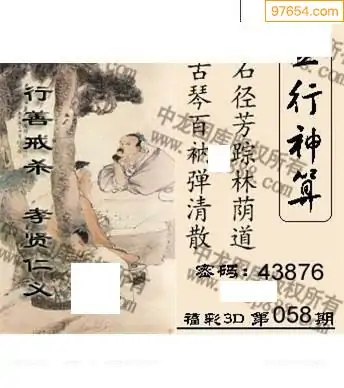 97654.com
五行神算
石径芳踪林荫道
古琴百被弹清散
行善戒杀 孝贤仁义
密码：43876
福彩3D 第058期
中龙图库版权所有